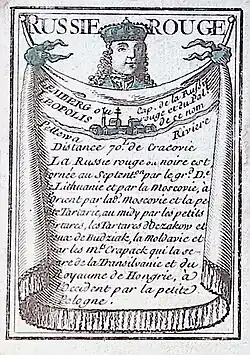 RUSSIE ROUGE
LEMBERG ou
LEOPOLIS
Cap. de la Russie
rouge et du Pal.
de ce nom
Riviere
Distance 70. de Cracovie
La Russie rouge ou noire est
ornée au Septent. par le gr. D.
Lithuanie et par la Moscovie, à
orient par la d. Moscovie et la pe
tite Tartarie, au midy par les petits
artares, les Tartares d'Oczakow et
de Budziak, la Moldavie et
ar les M. Crapack qui la se
are de la Transilvanie et du
Royaume de Hongrie, à
Occident par la petite
Pologne.